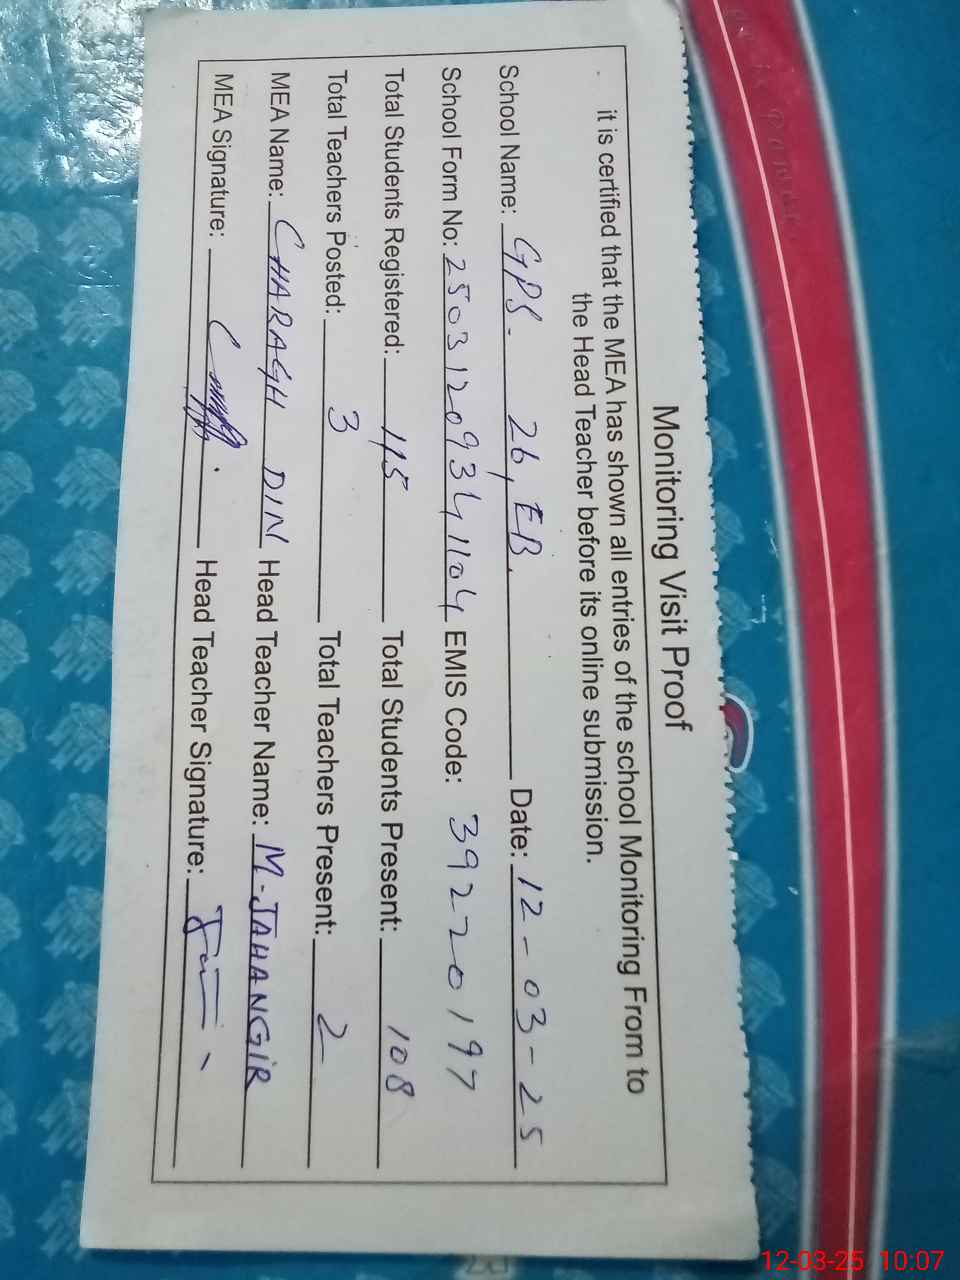 Monitoring Visit Proof
it is certified that the MEA has shown all entries of the school Monitoring From to
the Head Teacher before its online submission.
School Name: GPS. 26, EB. Date: 12-03-25
School Form No: 25031209341104 EMIS Code: 39220197
Total Students Registered: 115 Total Students Present: 108
Total Teachers Posted: 3 Total Teachers Present: 2
MEA Name: CHARAGH DIN Head Teacher Name: M-JAHANGIR
MEA Signature: Head Teacher Signature:
12-03-25 10:07